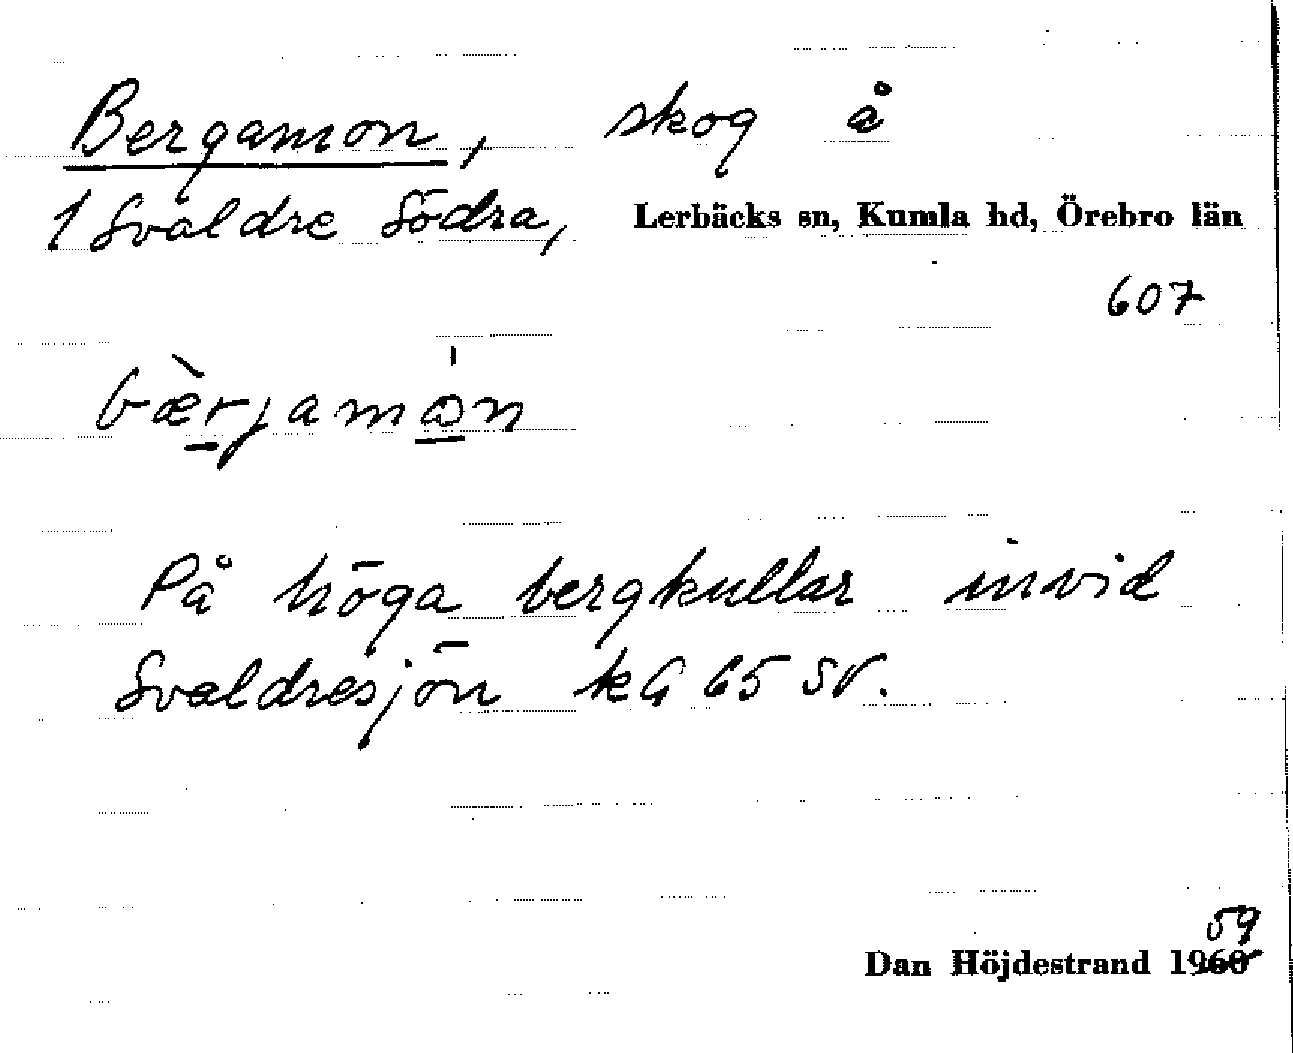 Bergamon, skog å
1 Svaldre Södra, Lerbäcks sn, Kumla hd, Örebro län
607
bæ̀rjamòn
På höga bergkullar invid
Svaldresjön kG 65 SV.
59
Dan Höjdestrand 1960